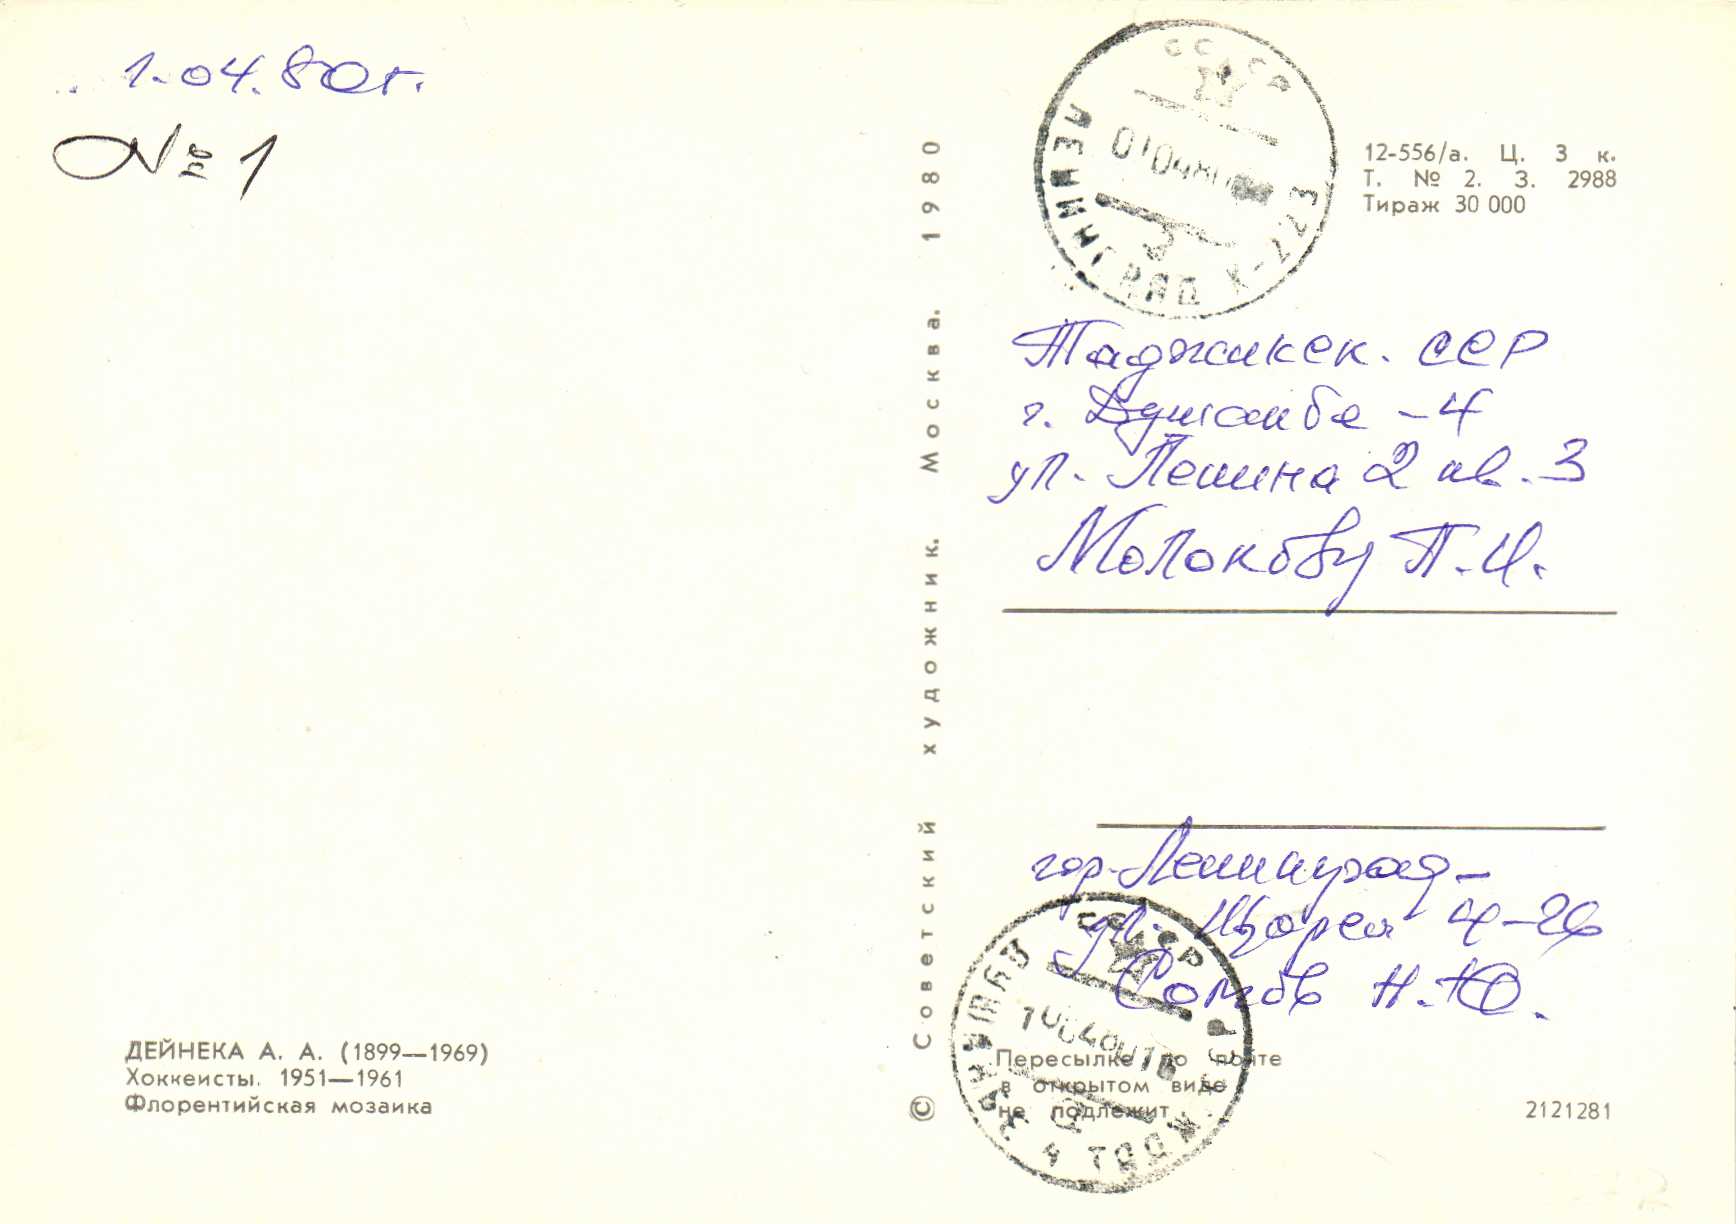 1.04.80г.
№ 1
СССР
ЛЕНИНГРАД
12-556/а. Ц. 3 к.
Т. № 2. З. 2988
Тираж 30 000
Таджикск. ССР
г. Душанбе - 4
ул. Ленина 2 кв. 3
Молокову П. И.
гор. Ленинград -
ул. 4-26
Н. Ю.
© Советский художник. Москва. 1980
СССР
ДУШАНБЕ 4 ТАДЖ
Пересылке по почте
в открытом виде
не подлежит
2121281
ДЕЙНЕКА А. А. (1899—1969)
Хоккеисты. 1951—1961
Флорентийская мозаика